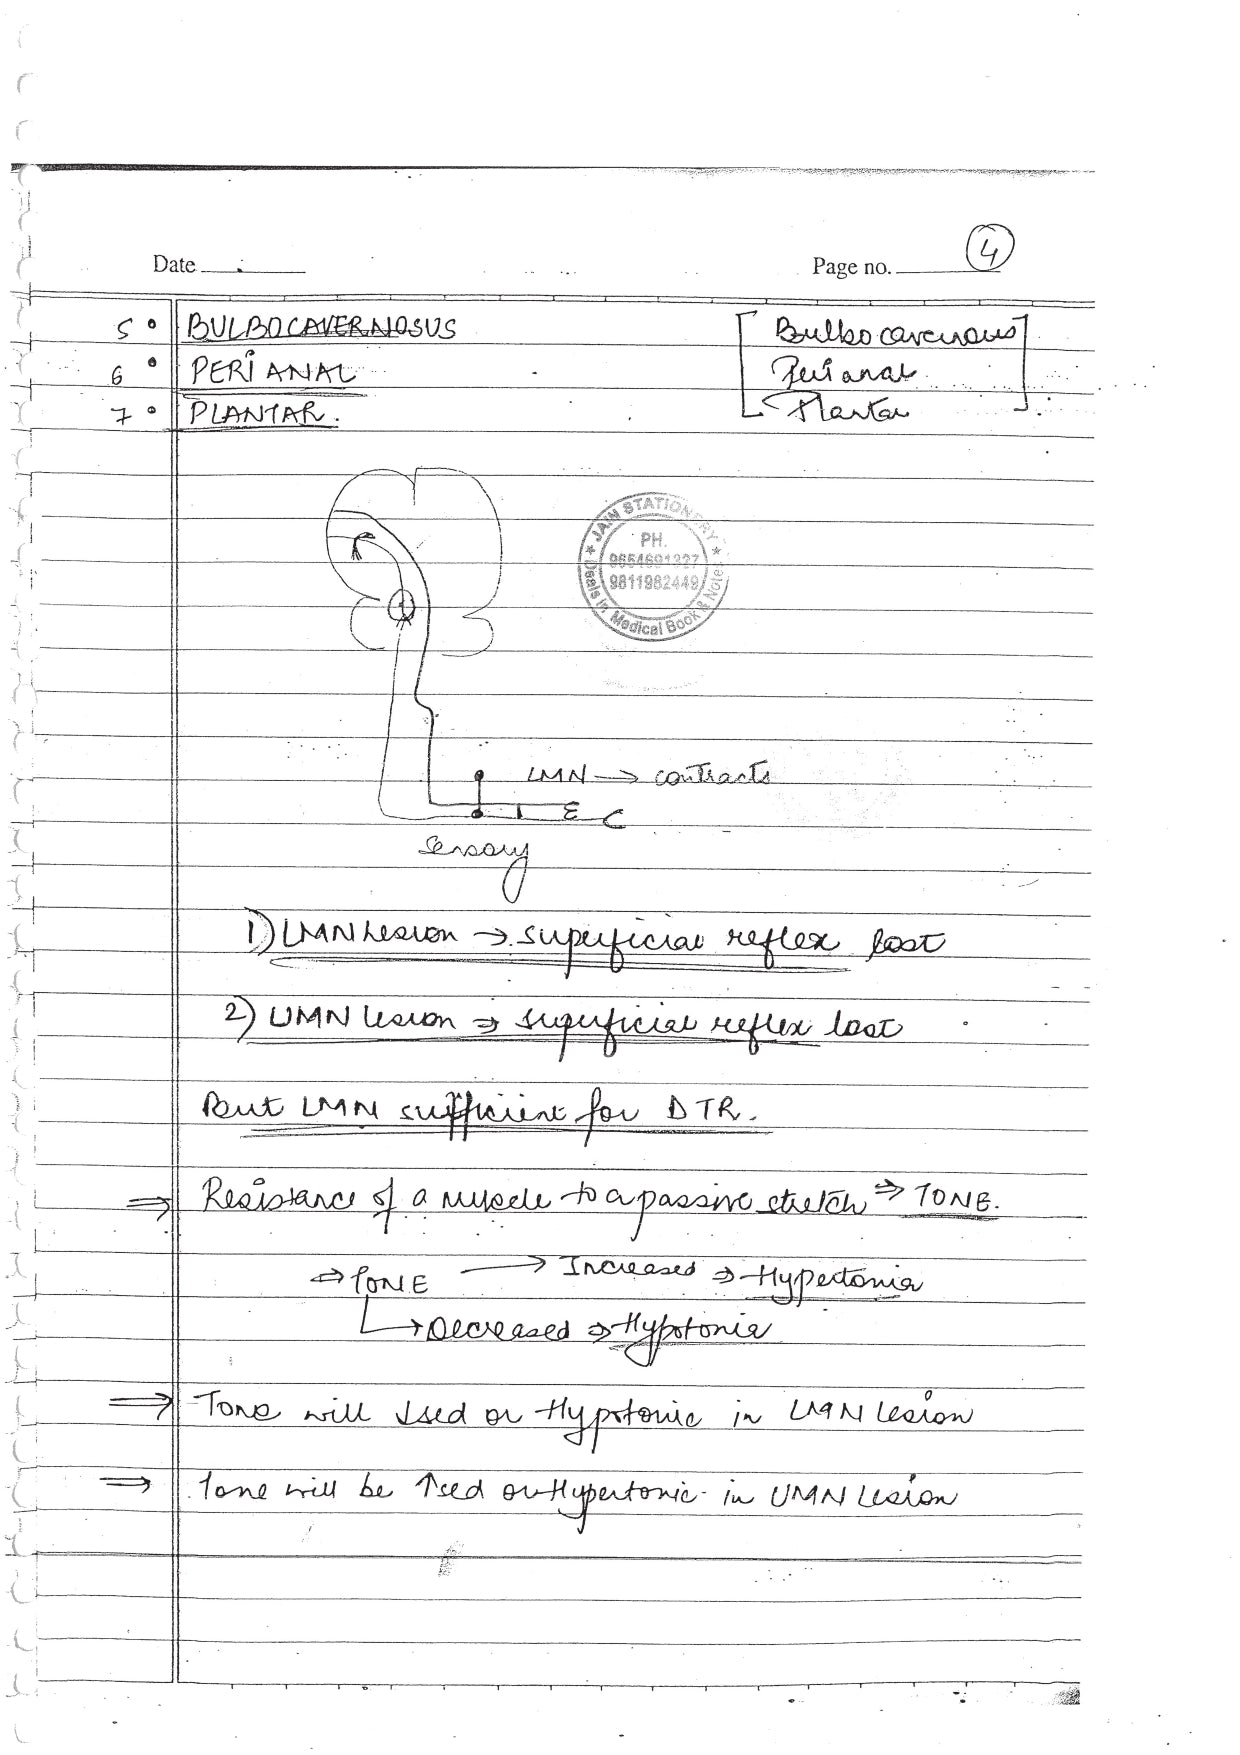 Date
Page no. 4
5° BULBOCAVERNOSUS
6° PERIANAL
7° PLANTAR.
[Bulbocavernous]
Perianal
Plantar
★ JAIN STATIONERY ★
PH.
9654691327
9811982449
Deals in Medical Book & Notes
LMN → contracts
Sensory
1) LMN lesion → superficial reflex lost
2) UMN lesion ⇒ superficial reflex lost
But LMN sufficient for DTR.
⇒ Resistance of a muscle to a passive stretch ⇒ TONE.
⇒ TONE → Increased ⇒ Hypertonia
→ Decreased ⇒ Hypotonia
⇒ Tone will ↓sed or Hypotonic in LMN lesion
⇒ Tone will be ↑sed or Hypertonic in UMN lesion